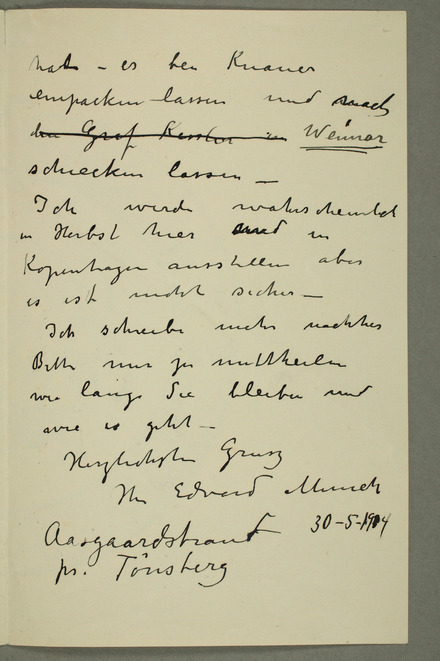 hat – es bei Knauer
einpacken lassen und nach
den Graf Kessler in Weimar
schicken lassen –
Ich werde wahrscheinlich
in Herbst hier und in
Kopenhagen ausstellen aber
es ist nicht sicher –
Ich schreibe mehr nächstes
Bitte mir zu mittheilen
wie lange Sie bleiben und
wie es geht –
Herzlichsten Grusz
Ihr Edvard Munch
30–5–1904
Aasgaardstrand
pr. Tönsberg